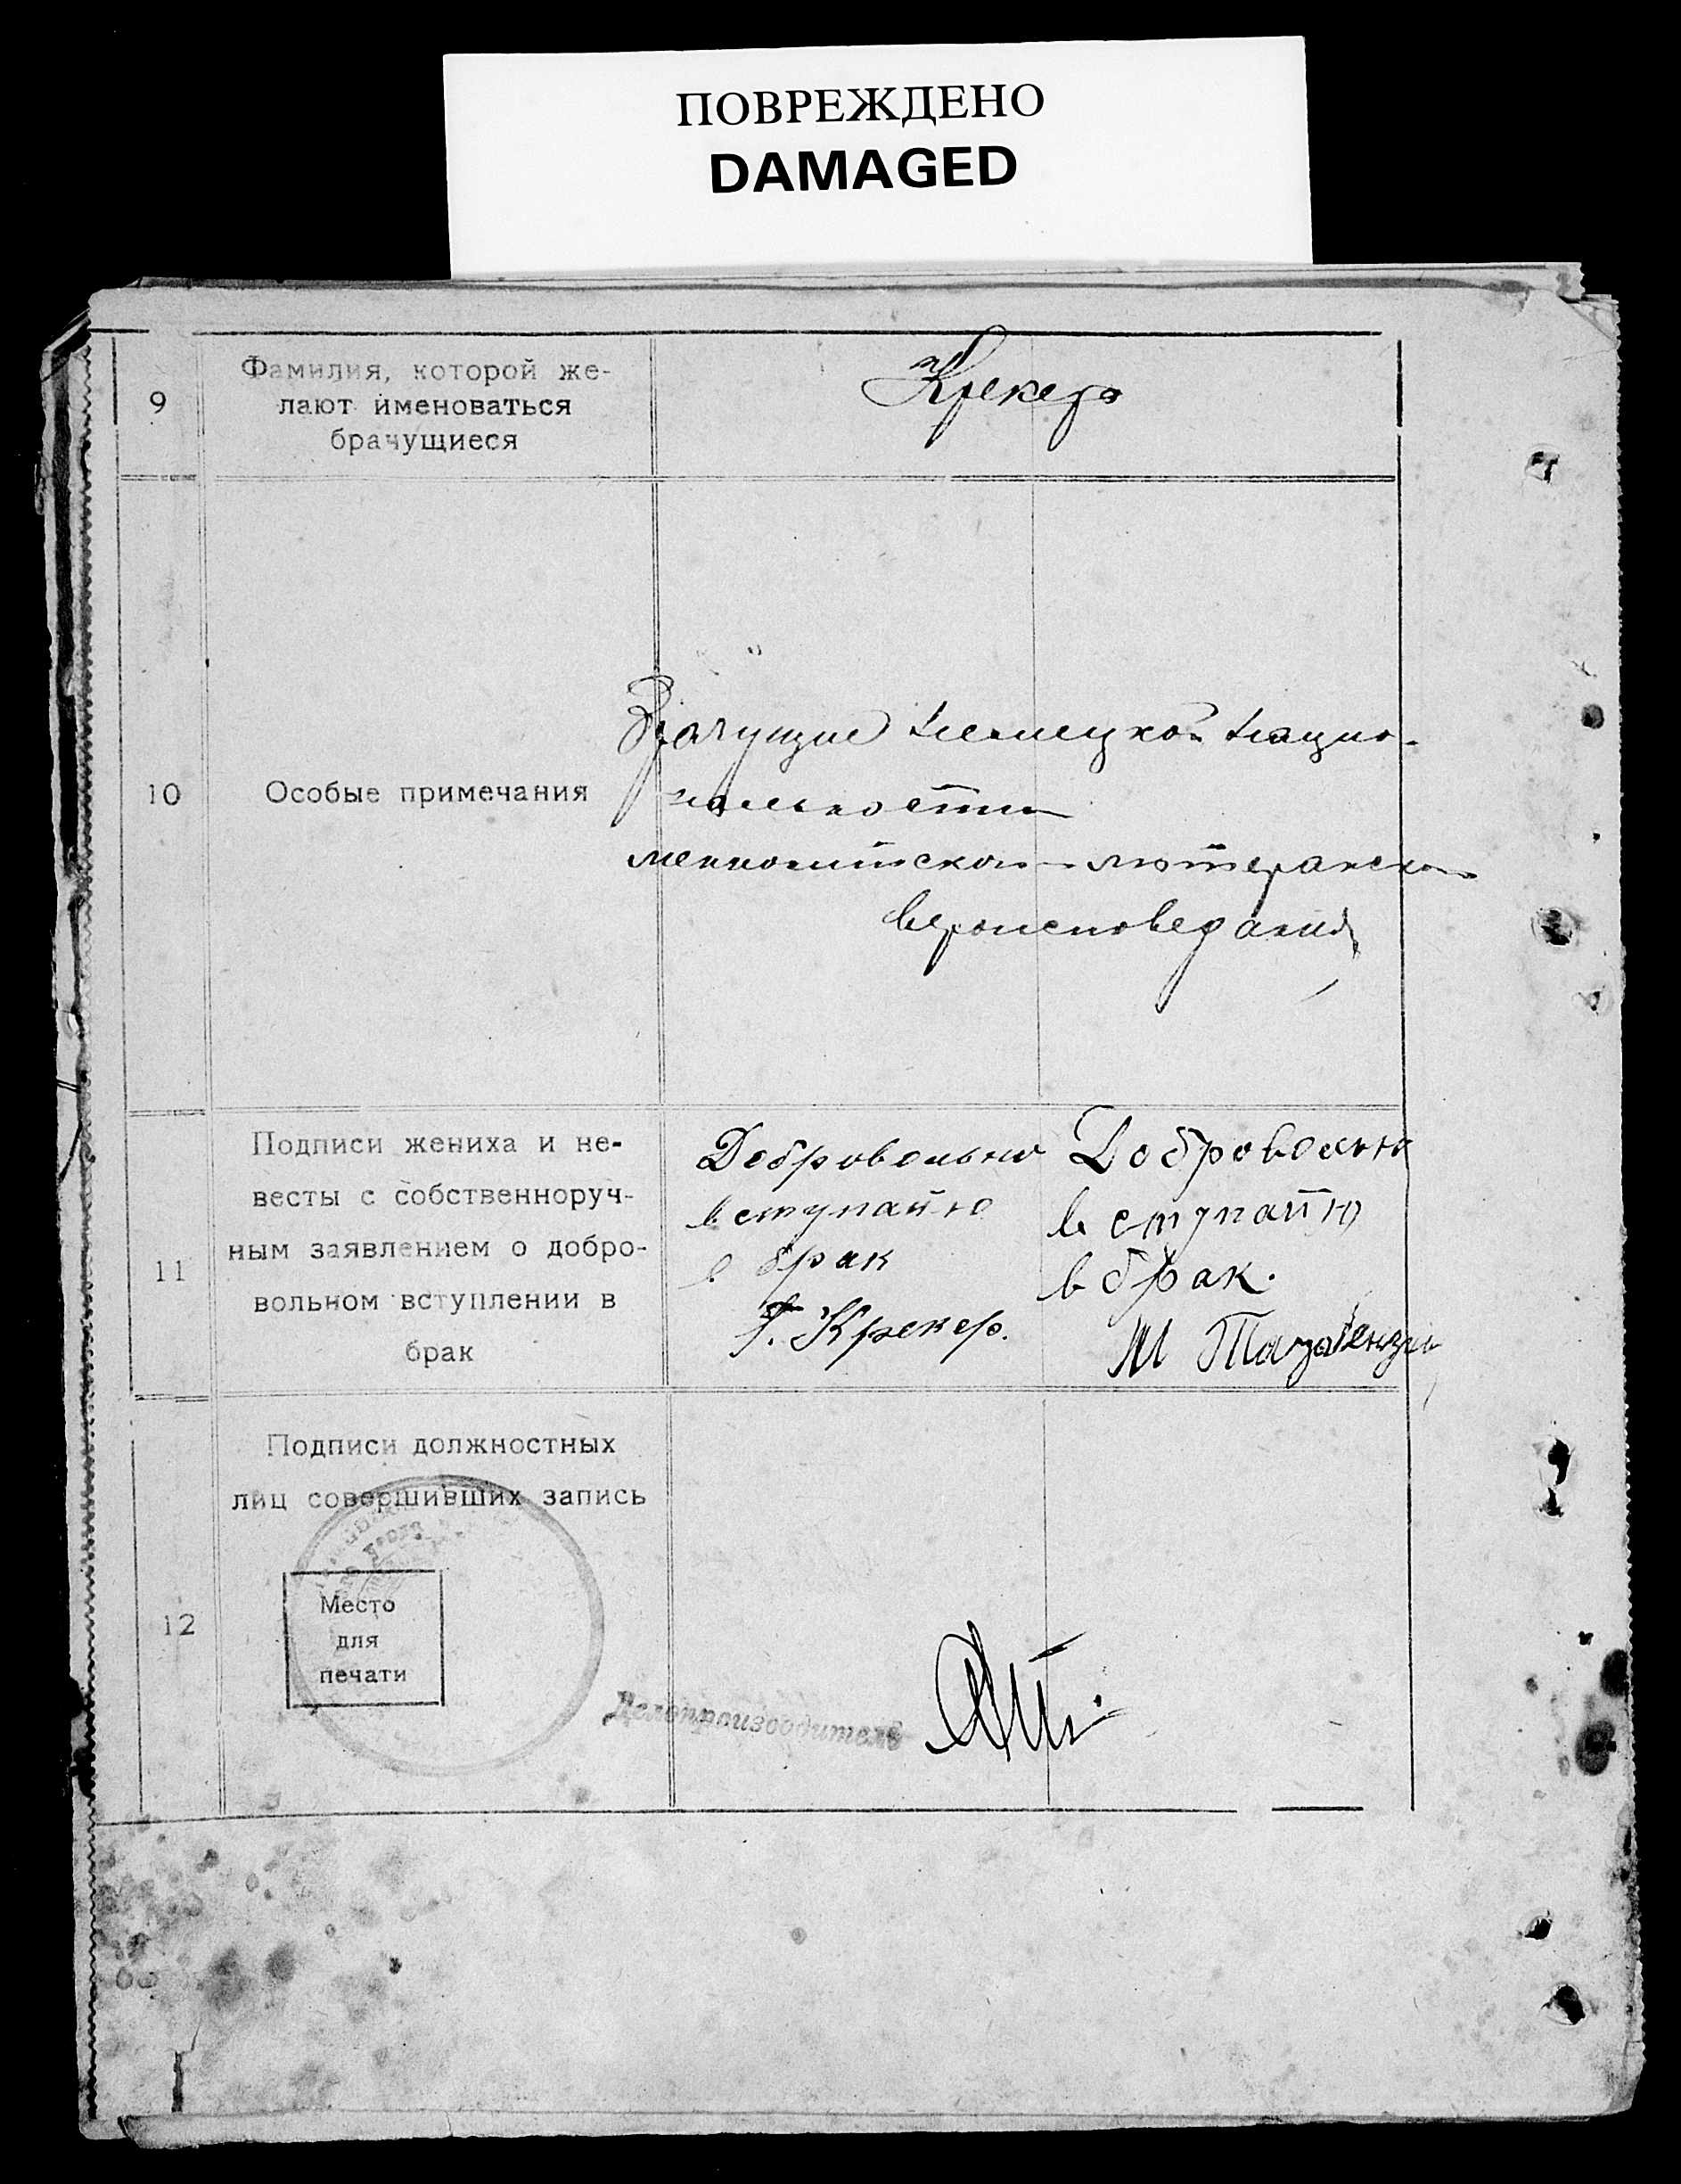 ПОВРЕЖДЕНО
DAMAGED
9
Фамилия, которой же-
лают именоваться
брачущиеся
Крекер
10
Особые примечания
Брачущие немецкой нацио-
нальности
меннонитской-лютеранской
вероисповедания
11
Подписи жениха и не-
весты с собственноруч-
ным заявлением о добро-
вольном вступлении в
брак
Добровольно
вступайю
в брак
Г. Крекер.
Добровольно
вступайю
в брак.
М
12
Подписи должностных
лиц совершивших запись
Место
для
печати
Делопроизводитель